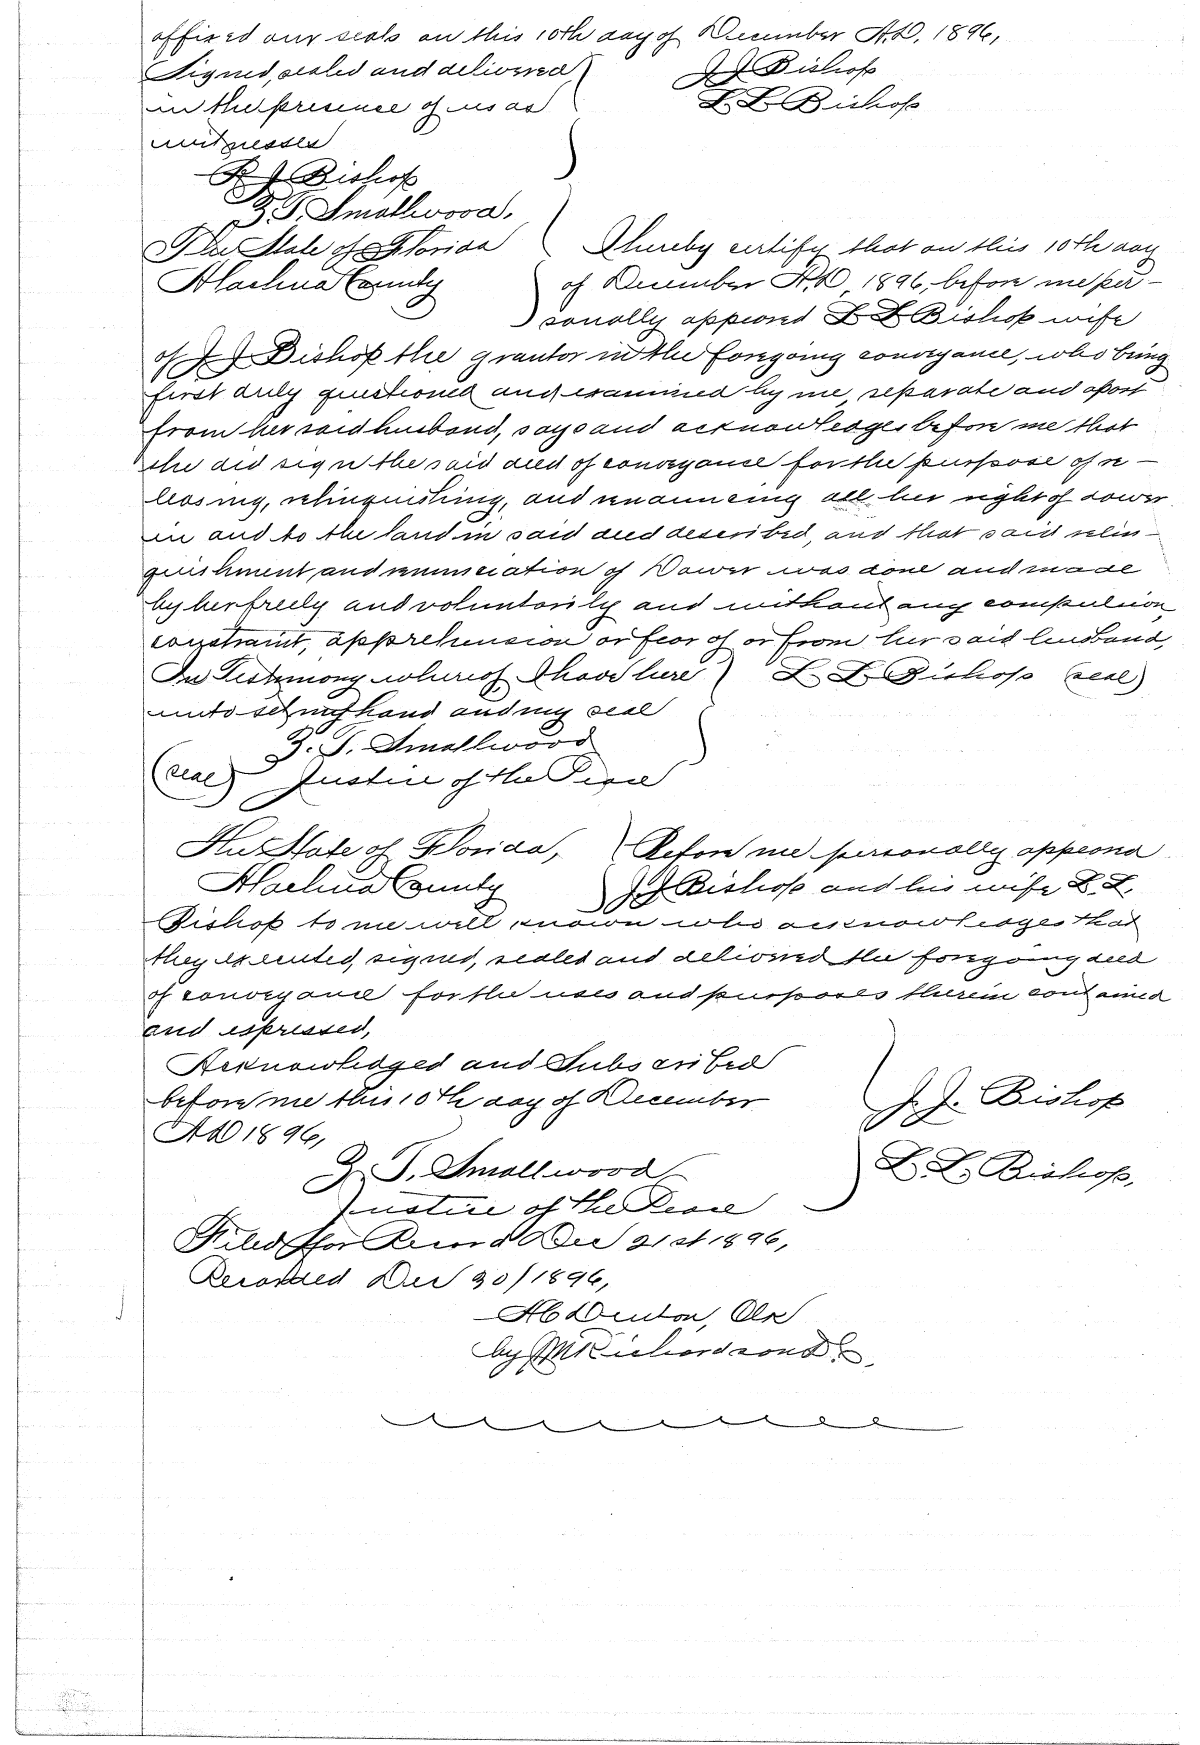 affixed our seals on this 10th day of December A.D, 1896,
Signed, sealed and delivered J J Bishop
in the presence of us as L L Bishop
witnesses
R J Bishop
Z. T. Smallwood.
The State of Florida I hereby certify that on this 10th day
Alachua County of December A.D, 1896, before me per-
sonally appeared L L Bishop wife
of J J Bishop the grantor in the foregoing conveyance, who being
first duly questioned and examined by me, separate and apart
from her said husband, says and acknowledges before me that
she did sign the said deed of conveyance for the purpose of re-
leasing, relinquishing, and renouncing all her right of dower
in and to the land in said deed described, and that said relin-
quishment and renunciation of Dower was done and made
by her freely and voluntarily and without any compulsion,
constraint, apprehension or fear of or from her said husband,
In Testimony whereof I have here L. L. Bishop (seal)
unto set my hand and my seal
Z. T. Smallwood
(seal) Justice of the Peace
The State of Florida, Before me personally appeared
Alachua County J J Bishop and his wife L. L.
Bishop to me well known who acknowledges that
they executed, signed, sealed and delivered the foregoing deed
of conveyance for the uses and purposes therein contained
and expressed,
Acknowledged and Subscribed
before me this 10th day of December J. J. Bishop
AD 1896,
Z. T. Smallwood L. L. Bishop,
Justice of the Peace
Filed for Record Dec 21st 1896,
Recorded Dec 30/1896,
H C Denton, Clk
by M Richardson D C.